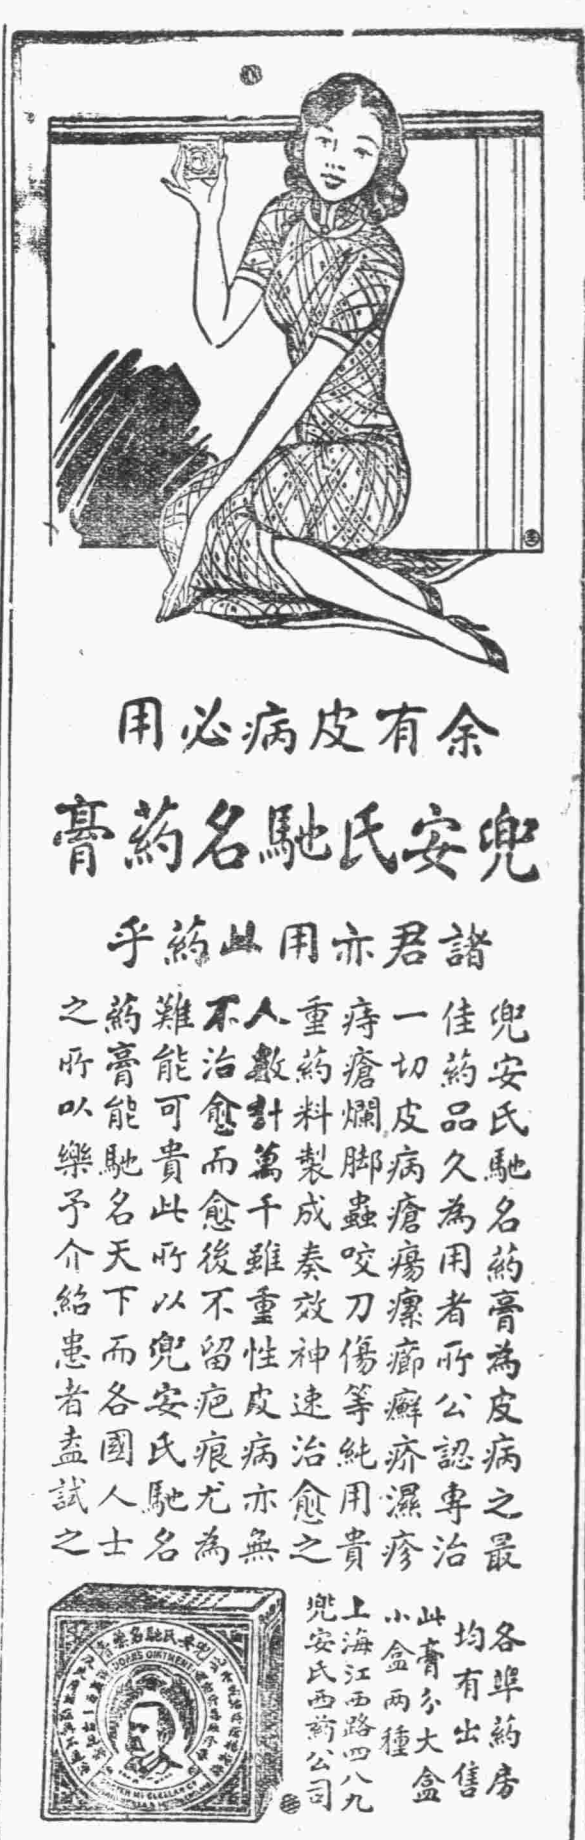 余有皮病必用
兜安氏馳名葯膏
諸君亦用此葯乎
兜安氏馳名葯膏為皮病之最
佳葯品久為用者所公認專治
一切皮病瘡瘍瘰癤癬疥濕疹
痔瘡爛脚蟲咬刀傷等純用貴
重葯料製成奏效神速治愈之
人數計萬千雖重性皮病亦無
不治愈而愈後不留疤痕尤為
難能可貴此所以兜安氏馳名
葯膏能馳名天下而各國人士
之所以樂予介紹患者盍試之
各埠葯房
均有出售
此膏分大盒
小盒兩種
上海江西路四八九
兜安氏西葯公司
兜安氏馳名葯膏
DOAN'S OINTMENT
FOSTER McCLELLAN CO